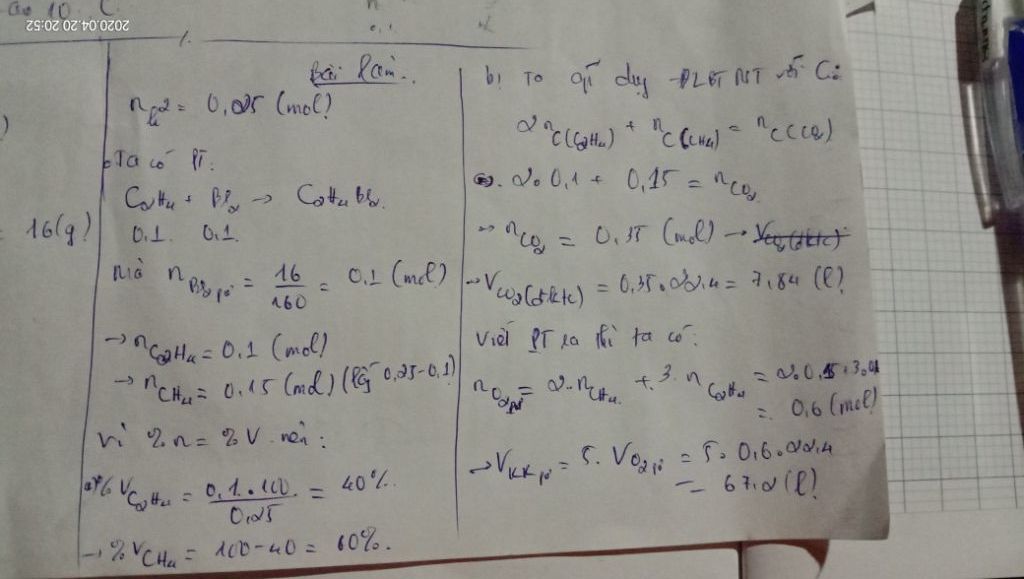 ao 10. C.
2020.04.20 20:52
0,1
= 16(g)
Bài làm..
n hh = 0,25 (mol)
Ta có PT:
C2H4 + Br2 → C2H4Br2.
0,1. 0,1.
mà nBr2 pư = 16/160 = 0,1 (mol)
→ nC2H4 = 0,1 (mol)
→ nCH4 = 0,15 (mol) (lấy 0,25-0,1)
Vì %n = %V nên:
a) %VC2H4 = 0,1.100/0,25 = 40%.
→ %VCH4 = 100-40 = 60%.
b) Ta dụng ĐLBT NT với C:
2nC(C2H4) + nC(CH4) = nC(CO2)
2.0,1 + 0,15 = nCO2
→ nCO2 = 0,35 (mol) → VCO2(đktc)
→ VCO2(đktc) = 0,35.22,4 = 7,84 (l)
Viết PT ra thì ta có:
nO2 pư = 2.nCH4 + 3.nC2H4 = 2.0,15+3.0,1
= 0,6 (mol)
→ VKK pư = 5.VO2 pư = 5.0,6.22,4
= 67,2 (l)